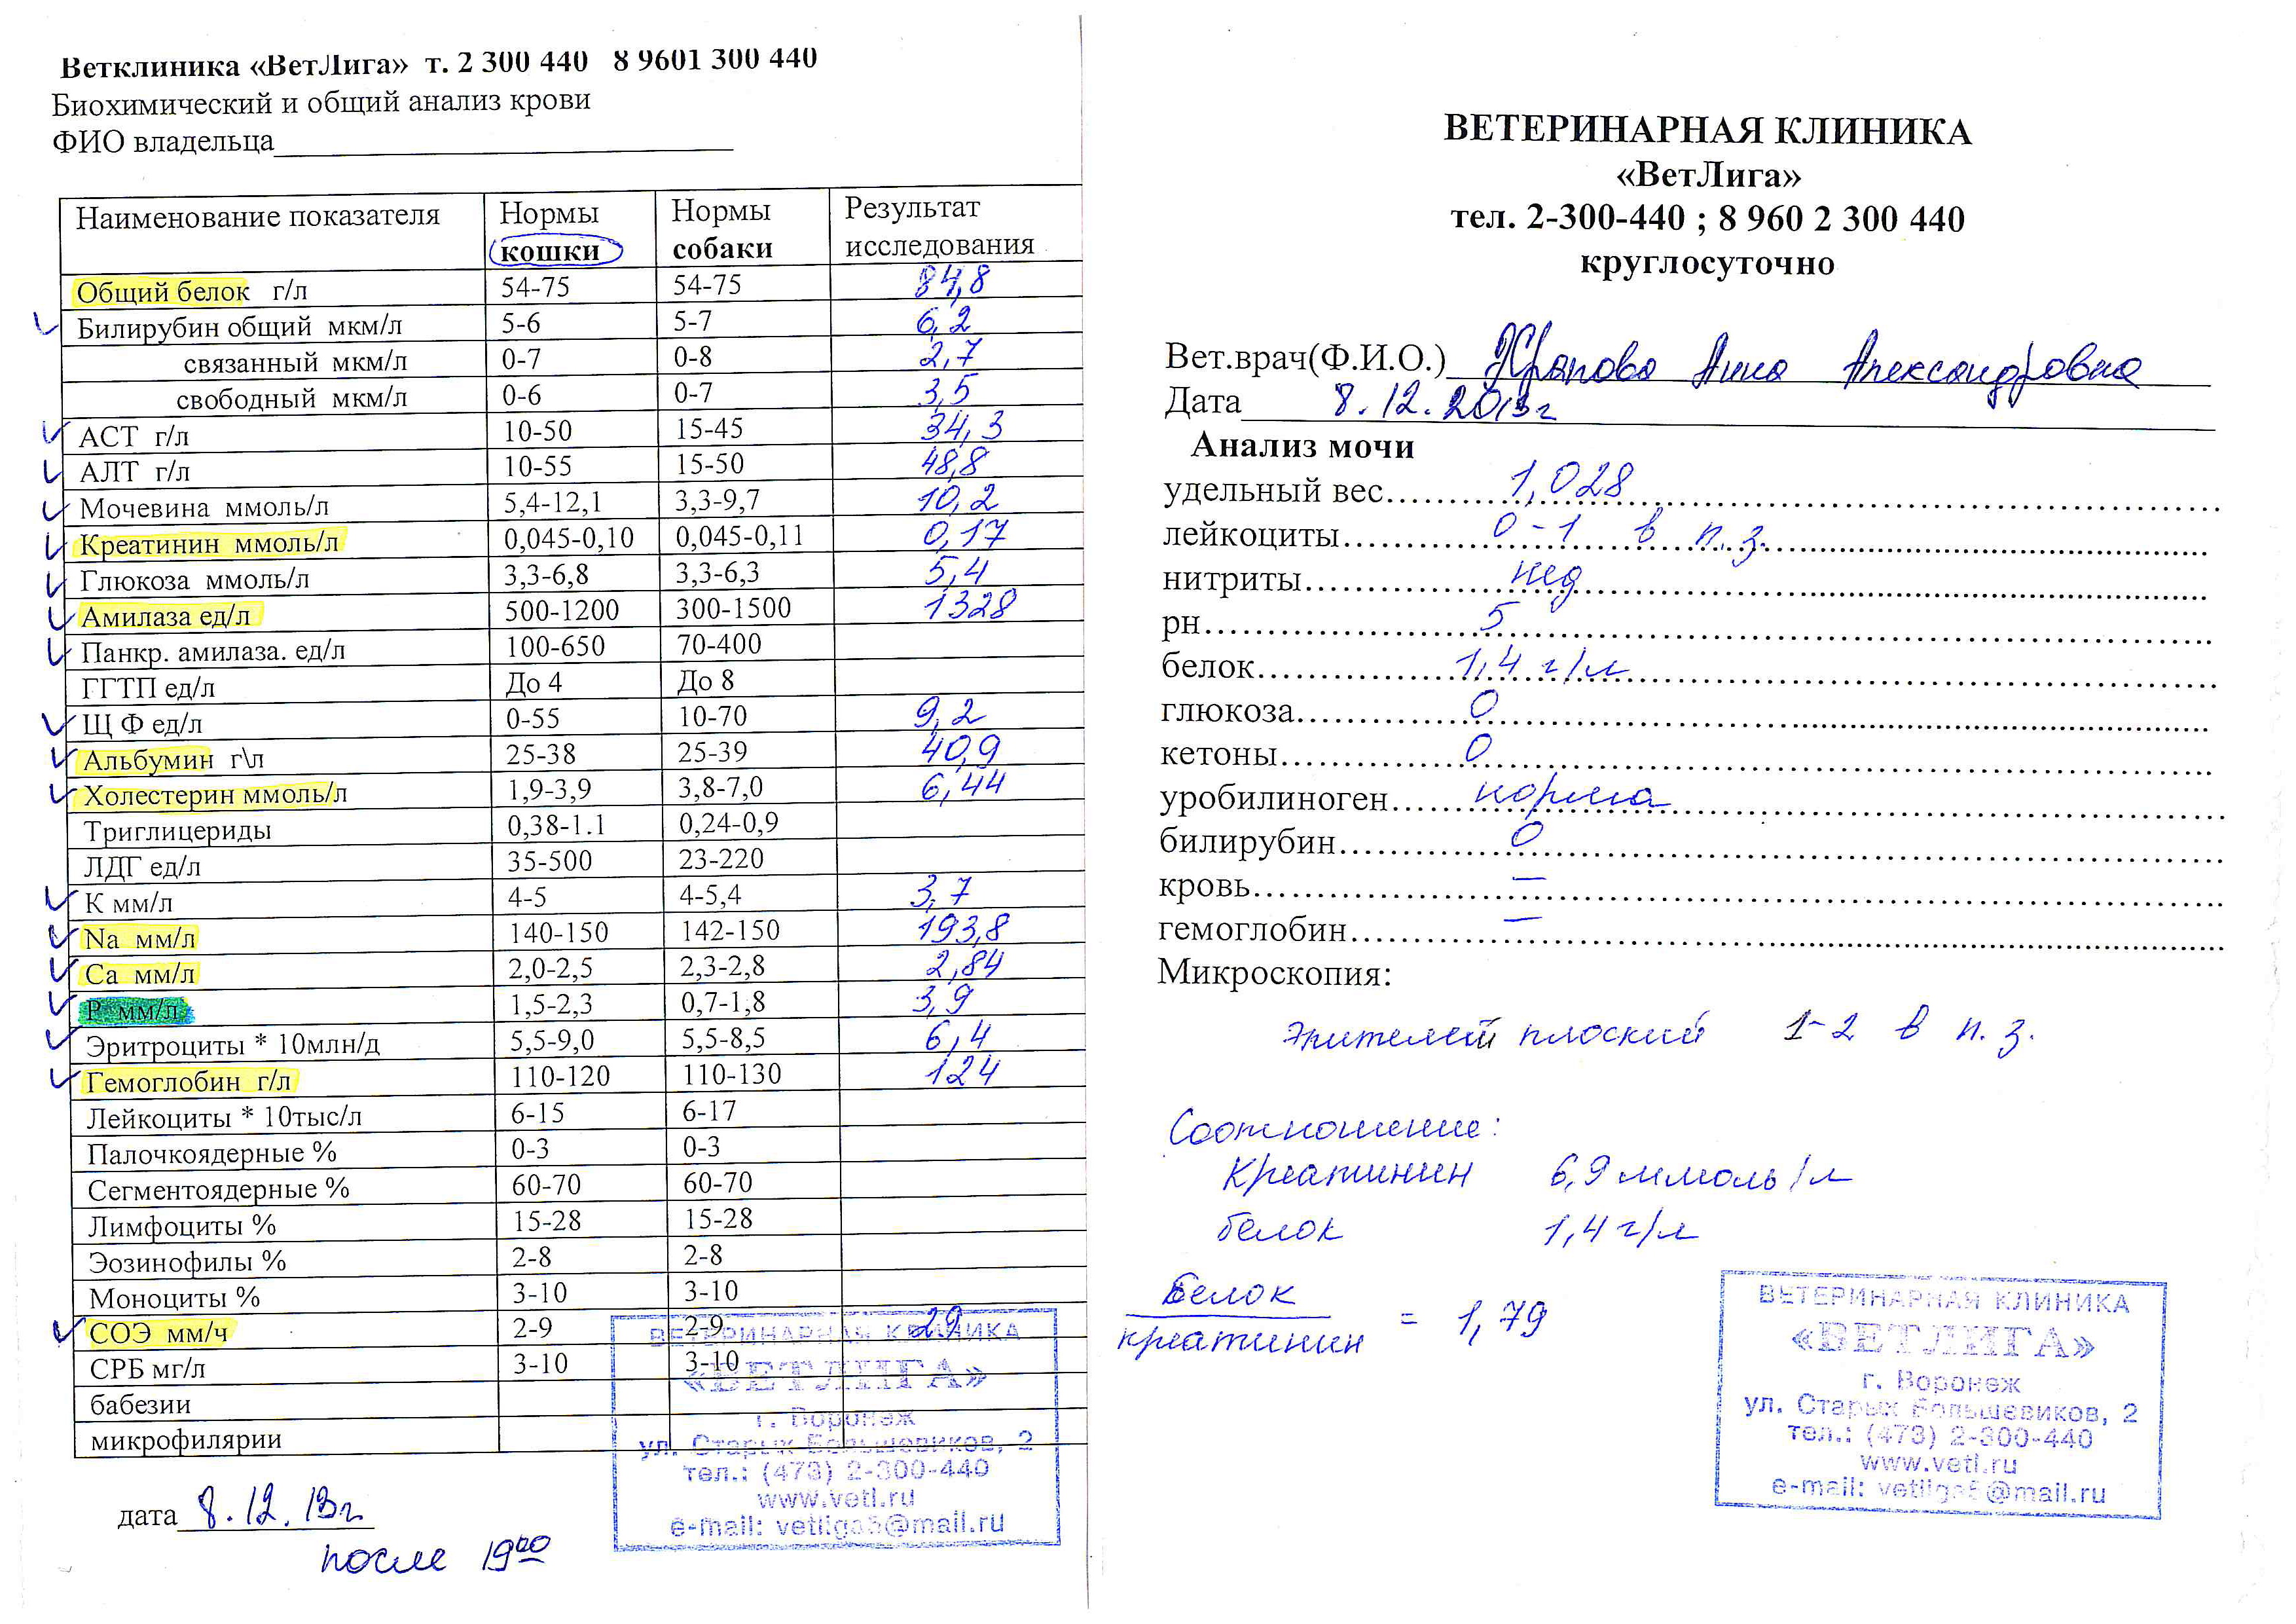 Ветклиника «ВетЛига» т. 2 300 440 8 9601 300 440
Биохимический и общий анализ крови
ФИО владельца
Наименование показателя Нормы кошки Нормы собаки Результат исследования
Общий белок г/л 54-75 54-75 84,8
Билирубин общий мкм/л 5-6 5-7 6,2
связанный мкм/л 0-7 0-8 2,7
свободный мкм/л 0-6 0-7 3,5
АСТ г/л 10-50 15-45 34,3
АЛТ г/л 10-55 15-50 48,8
Мочевина ммоль/л 5,4-12,1 3,3-9,7 10,2
Креатинин ммоль/л 0,045-0,10 0,045-0,11 0,17
Глюкоза ммоль/л 3,3-6,8 3,3-6,3 5,4
Амилаза ед/л 500-1200 300-1500 1328
Панкр. амилаза. ед/л 100-650 70-400
ГГТП ед/л До 4 До 8
Щ Ф ед/л 0-55 10-70 9,2
Альбумин г\л 25-38 25-39 40,9
Холестерин ммоль/л 1,9-3,9 3,8-7,0 6,44
Триглицериды 0,38-1.1 0,24-0,9
ЛДГ ед/л 35-500 23-220
К мм/л 4-5 4-5,4 3,7
Na мм/л 140-150 142-150 193,8
Ca мм/л 2,0-2,5 2,3-2,8 2,84
Р мм/л 1,5-2,3 0,7-1,8 3,9
Эритроциты * 10млн/д 5,5-9,0 5,5-8,5 6,4
Гемоглобин г/л 110-120 110-130 124
Лейкоциты * 10тыс/л 6-15 6-17
Палочкоядерные % 0-3 0-3
Сегментоядерные % 60-70 60-70
Лимфоциты % 15-28 15-28
Эозинофилы % 2-8 2-8
Моноциты % 3-10 3-10
СОЭ мм/ч 2-9 2-9 29
СРБ мг/л 3-10 3-10
бабезии
микрофилярии
ВЕТЕРИНАРНАЯ КЛИНИКА
«ВЕТЛИГА»
г. Воронеж
ул. Старых Большевиков, 2
тел.: (473) 2-300-440
www.vetl.ru
e-mail: vetliga8@mail.ru
дата 8.12.13г
после 19 00
ВЕТЕРИНАРНАЯ КЛИНИКА
«ВетЛига»
тел. 2-300-440 ; 8 960 2 300 440
круглосуточно
Вет.врач(Ф.И.О.) Анна Александровна
Дата 8.12.2013г
Анализ мочи
удельный вес 1,028
лейкоциты 0-1 в п.з.
нитриты
рн 5
белок 1,4 г/л
глюкоза 0
кетоны 0
уробилиноген норма
билирубин 0
кровь —
гемоглобин —
Микроскопия:
Эпителий плоский 1-2 в п.з.
Соотношение:
Креатинин 6,9 ммоль/л
белок 1,4 г/л
Белок
креатинин = 1,79
ВЕТЕРИНАРНАЯ КЛИНИКА
«ВЕТЛИГА»
г. Воронеж
ул. Старых Большевиков, 2
тел.: (473) 2-300-440
www.vetl.ru
e-mail: vetliga8@mail.ru